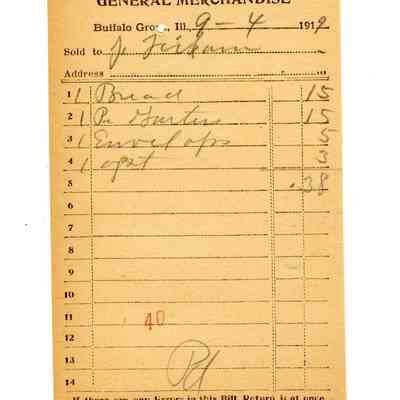 GENERAL MERCHANDISE
Buffalo Grove, Ill., 9-4 1919
Sold to J.
Address
1 1 Bread 15
2 1 Pr Garters 15
3 1 Envelops 5
4 1 3
5 .38
6
7
8
9
10
11 40
12
13 Pd
14
If there are any Errors in this Bill, Return it at once